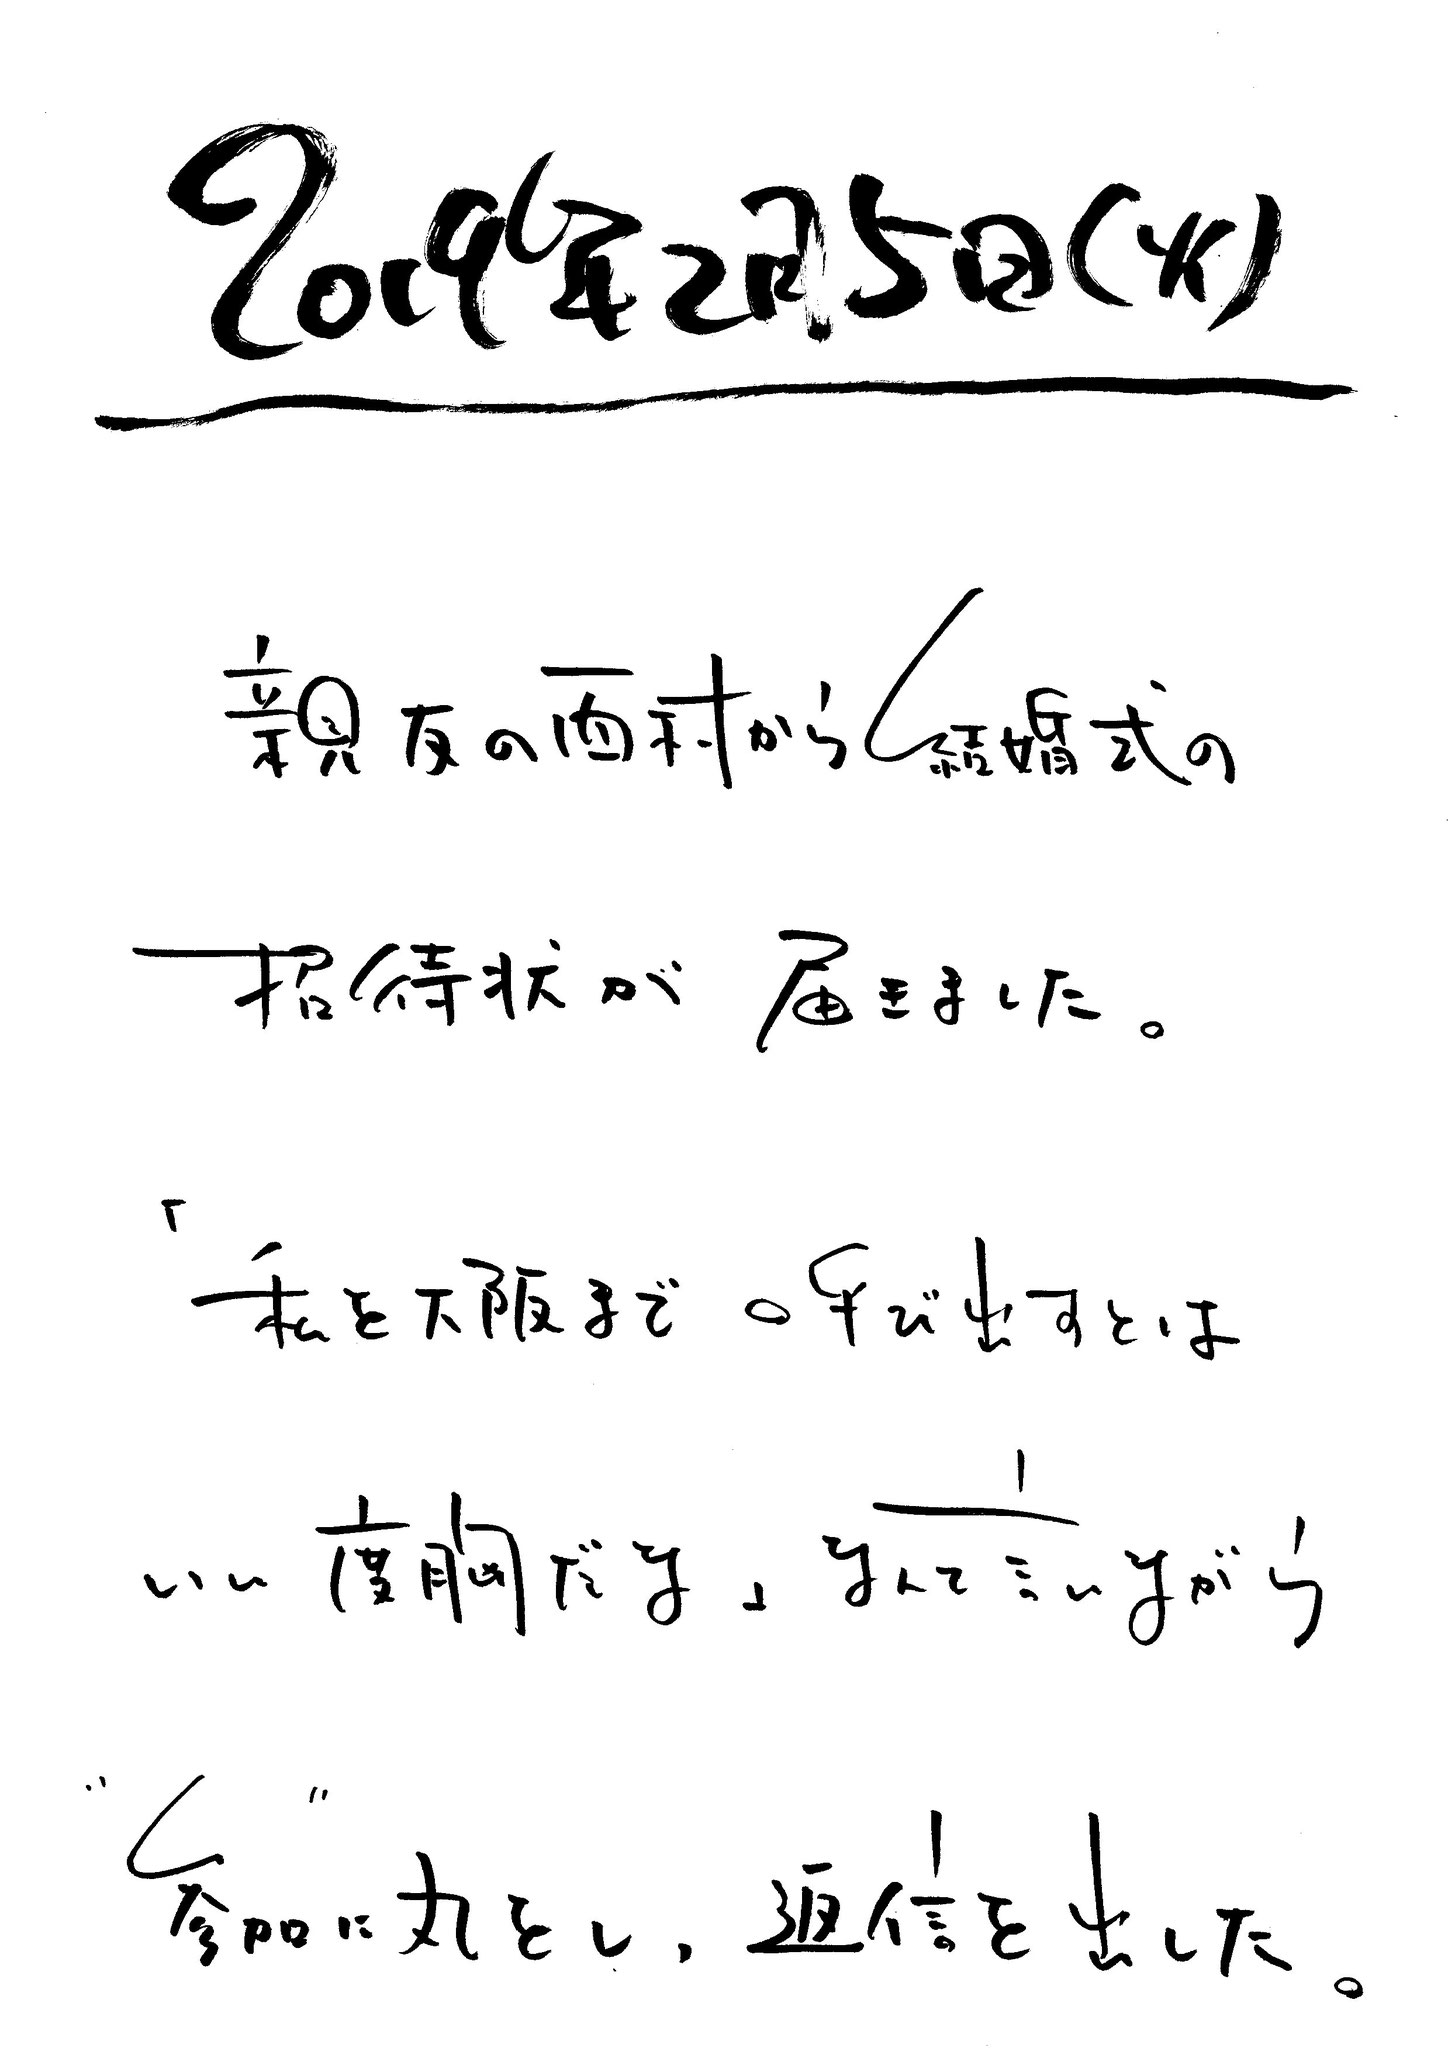 2019年2月5日(火)
親友の西村から結婚式の
招待状が届きました。
「私を大阪まで呼び出すとは
いい度胸だな」なんて言いながら
"参加"に丸をし、返信を出した。